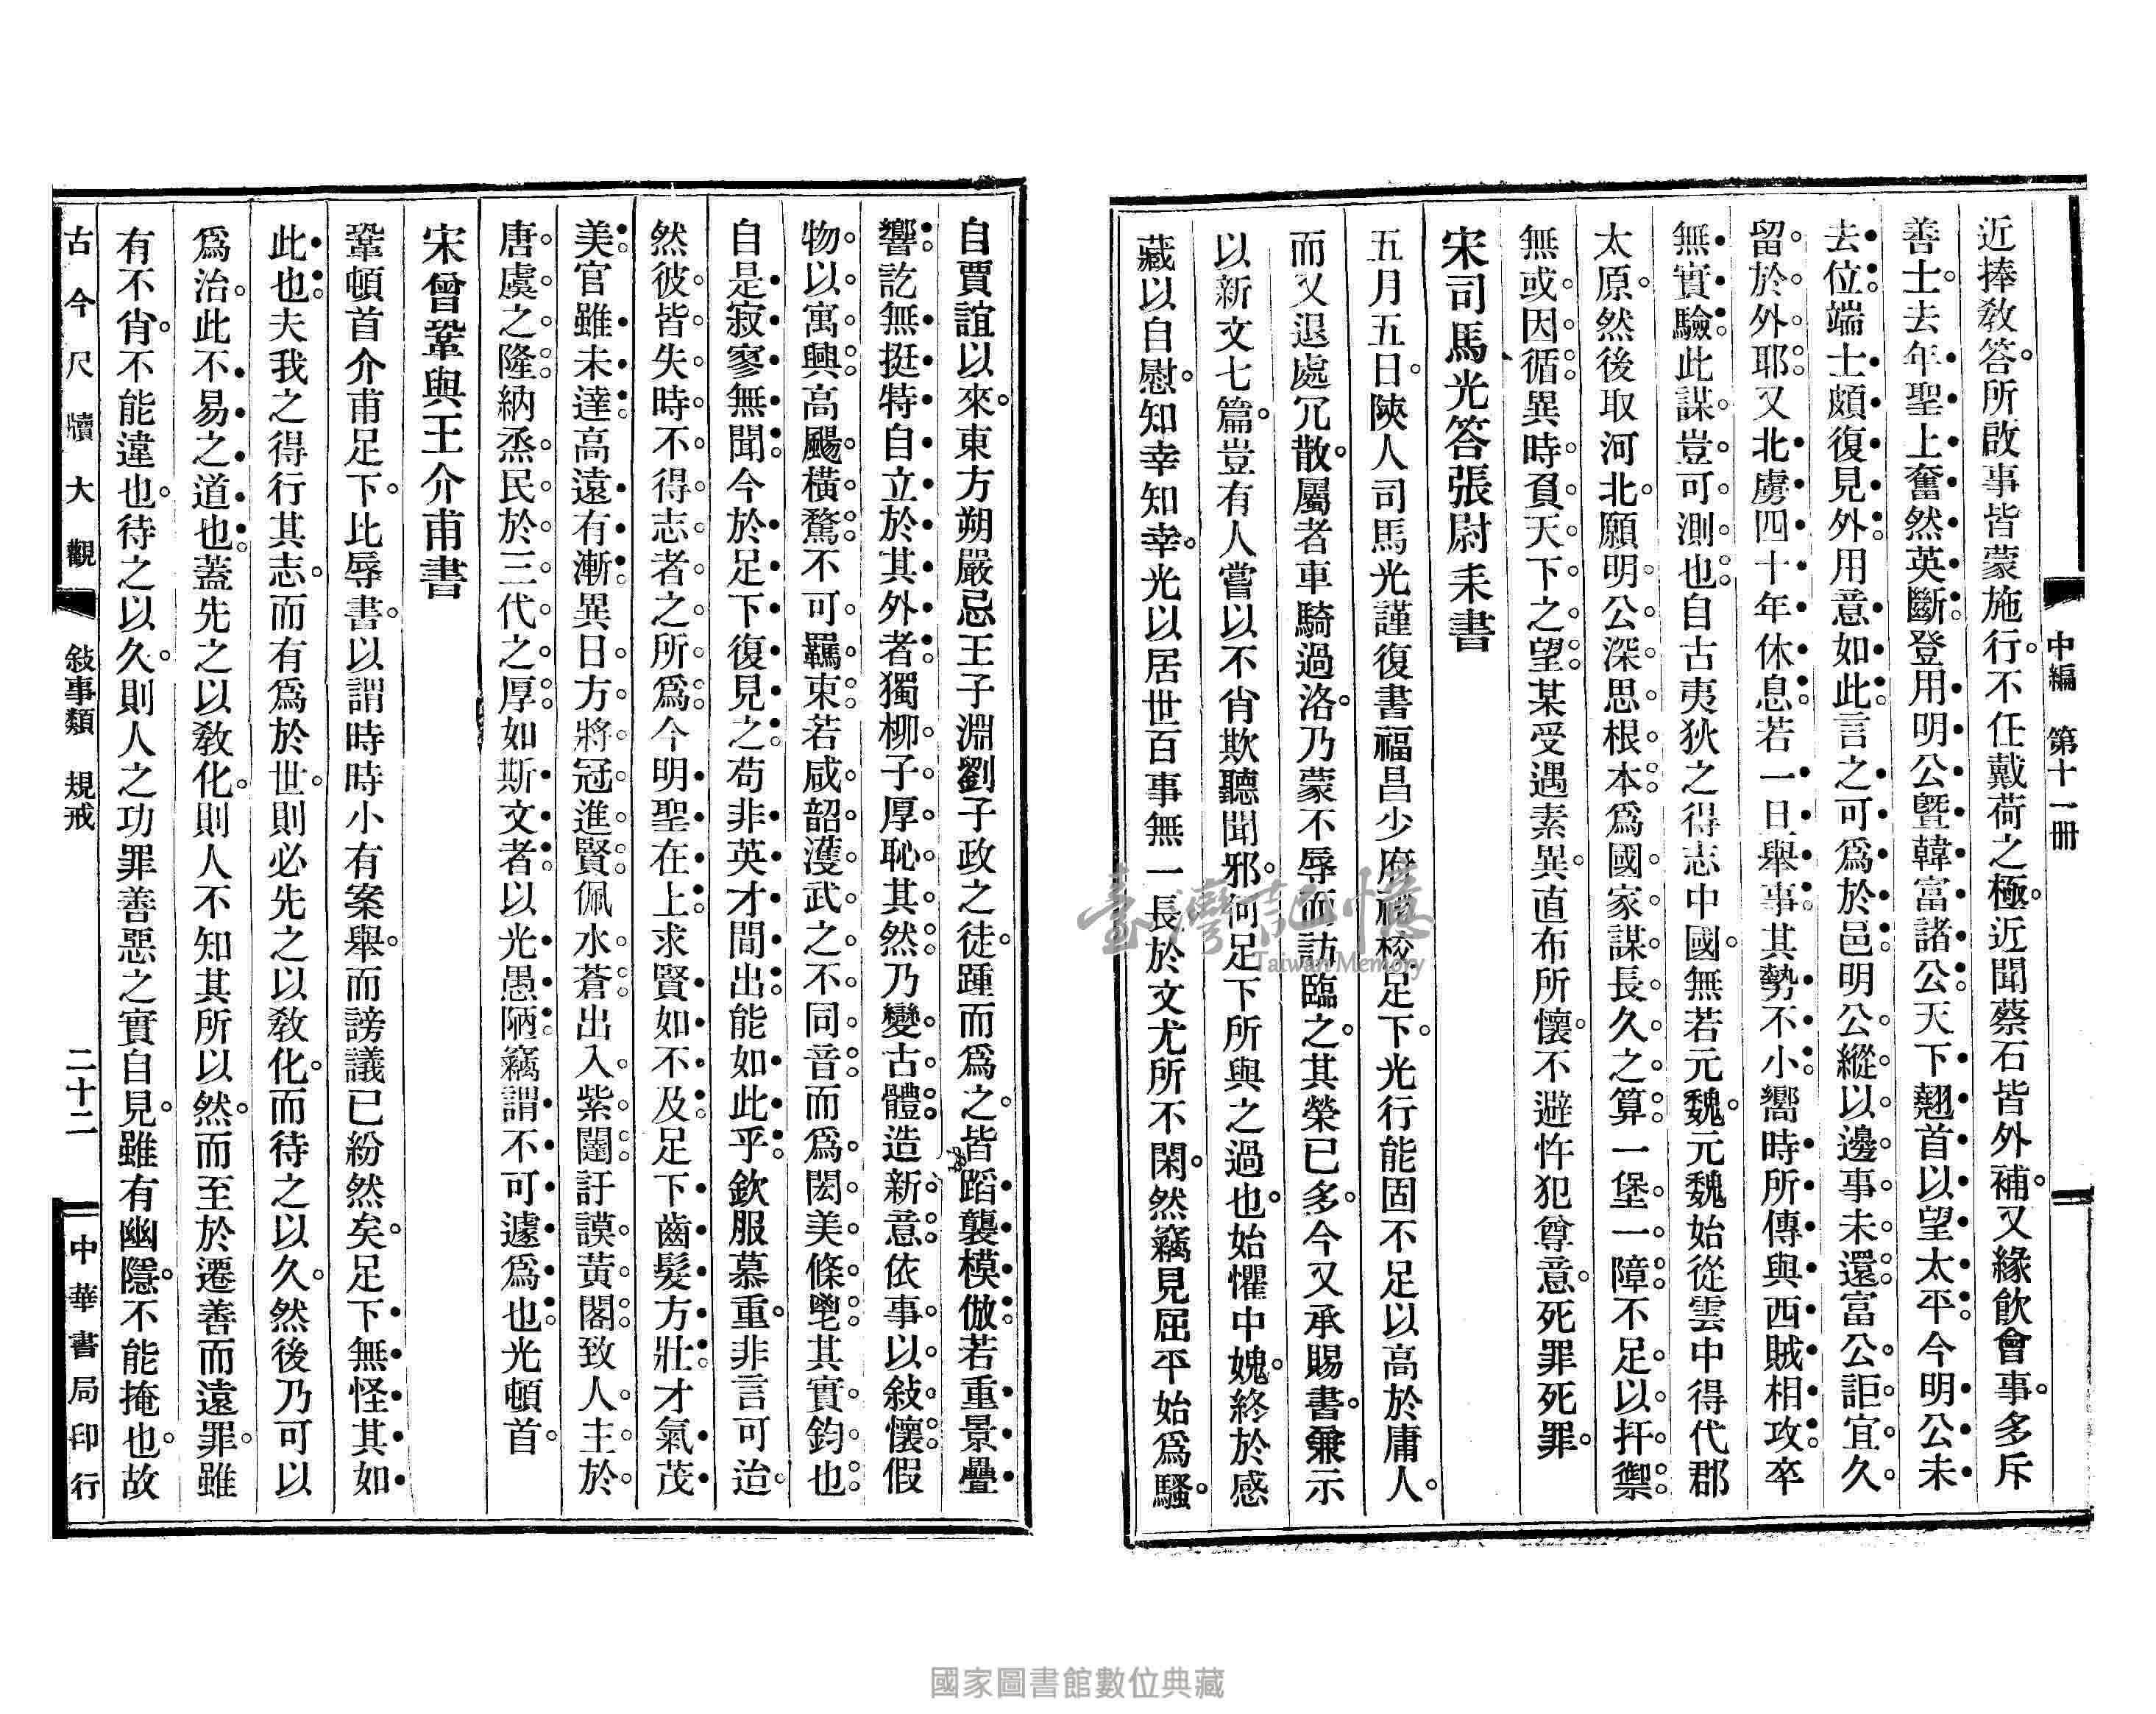 中編　第十一冊
近捧教答。所啟事皆蒙施行。不任戴荷之極。近聞蔡石皆外補。又緣飲會事。多斥
善士。去年聖上奮然英斷。登用明公曁韓富諸公。天下翹首以望太平。今明公未
去位。端士頗復見外。用意如此。言之可爲於邑。明公縱以邊事未還。富公詎宜久
留於外耶。又北虜四十年休息。若一旦舉事。其勢不小。嚮時所傳與西賊相攻。卒
無實驗。此謀豈可測也。自古夷狄之得志中國。無若元魏。元魏始從雲中得代郡
太原。然後取河北。願明公深思根本。爲國家謀長久之算。一堡一障。不足以扞禦。
無或因循。異時負天下之望。某受遇素異。直布所懷。不避忤犯尊意。死罪死罪。
宋司馬光答張尉耒書
五月五日。陝人司馬光謹復書福昌少府祕校足下。光行能固不足以高於庸人。
而又退處冗散。屬者車騎過洛。乃蒙不辱而訪臨之。其榮已多。今又承賜書。兼示
以新文七篇。豈有人嘗以不肖欺聽聞邪。何足下所與之過也。始懼中媿。終於感
藏以自慰。知幸知幸。光以居世百事無一長。於文尤所不閑。然竊見屈平始爲騷。
自賈誼以來。東方朔嚴忌王子淵劉子政之徒。踵而爲之。皆蹈襲模倣。若重景疊
響。訖無挺特自立於其外者。獨柳子厚恥其然。乃變古體。造新意。依事以敍懷。假
物以寓興。高颺橫騖。不可羈束。若咸韶濩武之不同音。而爲閎美條鬯。其實鈞也。
自是寂寥無聞。今於足下復見之。苟非英才間出。能如此乎。欽服慕重。非言可迨。
然彼皆失時不得志者之所爲。今明聖在上。求賢如不及。足下齒髮方壯。才氣茂
美。官雖未達。高遠有漸。異日方將冠進賢。佩水蒼。出入紫闥。訏謨黃閣。致人主於
唐虞之隆。納烝民於三代之厚。如斯文者。以光愚陋。竊謂不可遽爲也。光頓首。
宋曾鞏與王介甫書
鞏頓首介甫足下。比辱書。以謂時時小有案舉。而謗議已紛然矣。足下無怪其如
此也。夫我之得行其志。而有爲於世。則必先之以教化。而待之以久。然後乃可以
爲治。此不易之道也。蓋先之以教化。則人不知其所以然。而至於遷善而遠罪。雖
有不肖。不能違也。待之以久。則人之功罪善惡之實自見。雖有幽隱。不能掩也。故
古今尺牘大觀　敍事類　規戒　二十二　中華書局印行
臺灣記憶
Taiwan Memory
國家圖書館數位典藏